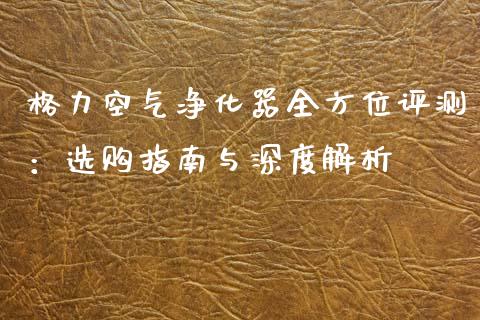 格力空气净化器全方位评测
：选购指南与深度解析